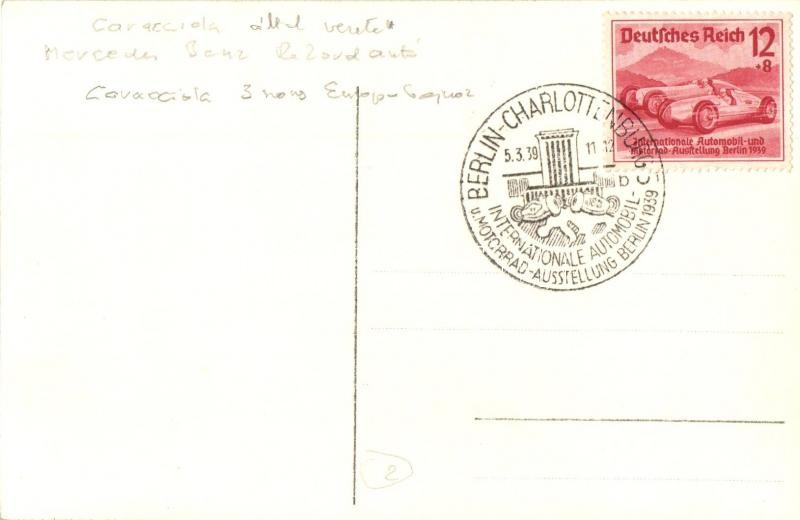 Caracciola által vezetett
Mercedes Benz Rekordautó
Caracciola 3 szoros Európa-bajnok
Deutsches Reich 12
+8
Internationale Automobil-und
Motorrad-Ausstellung Berlin 1939
BERLIN-CHARLOTTENBURG
5.3.39 11-12
b
INTERNATIONALE AUTOMOBIL-
U. MOTORRAD-AUSSTELLUNG BERLIN 1939
2